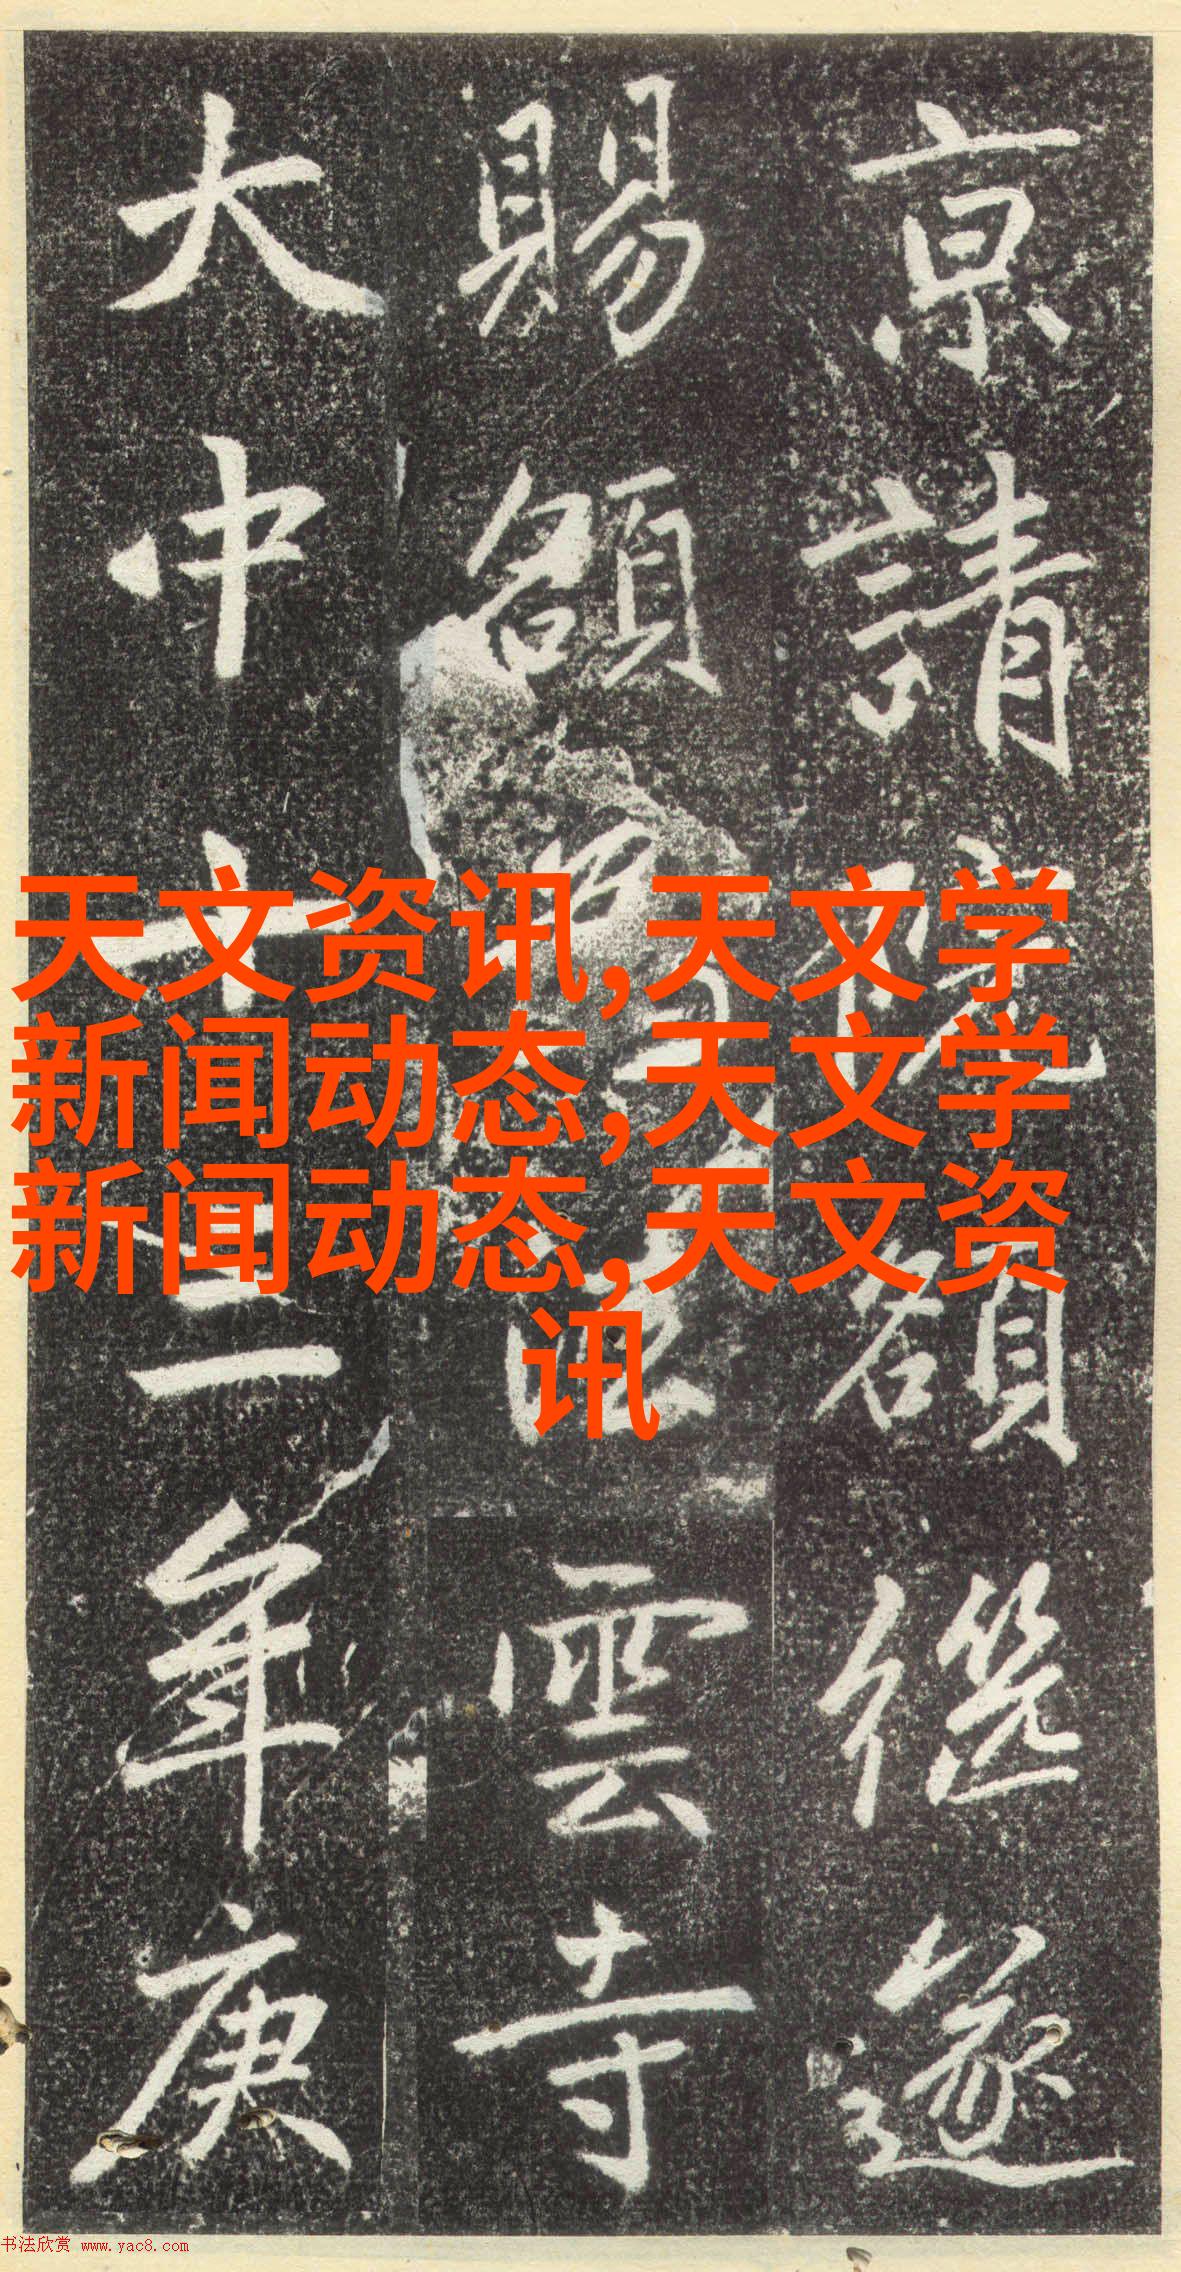 天文资讯,天文学
新闻动态,天文学
新闻动态,天文资
讯
京請院額継遂
賜額雲寺
大中十三年庚
书法欣赏 www.yac8.com